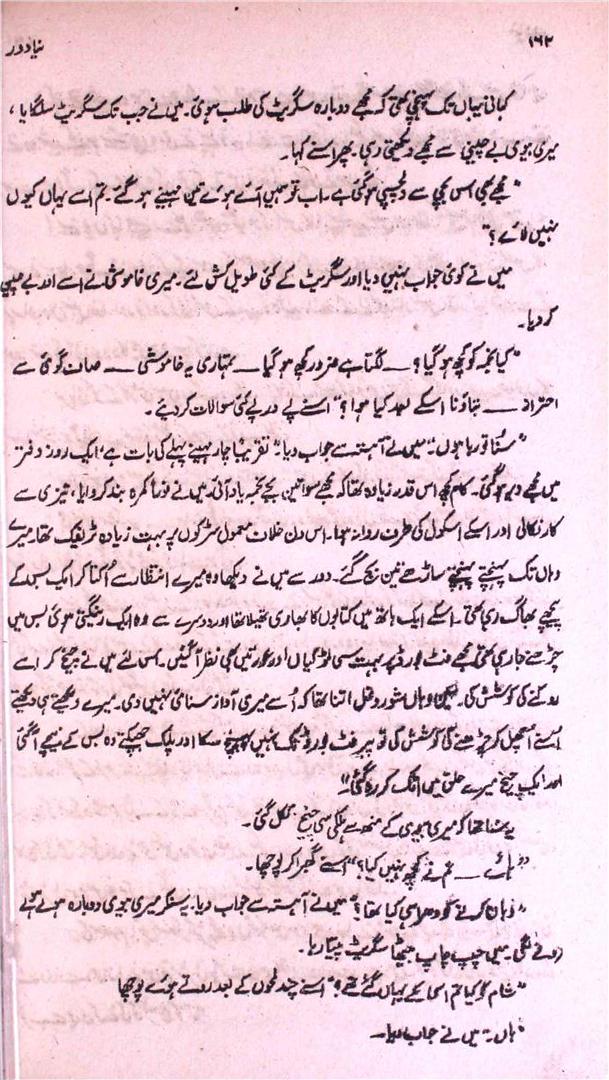 ۱۶۲
نیا دور
کہانی یہاں تک پہنچی تھی کہ مجھے دوبارہ سگریٹ کی طلب ہوئی۔ میں نے جب تک سگریٹ سلگایا،
میری بیوی بے چینی سے مجھے دیکھتی رہی۔ پھر اسنے کہا۔
"مجھے بھی اس بچی سے دلچسپی ہو گئی ہے۔ اب تو ہمیں آئے ہوئے تین مہینے ہو گئے۔ تم اسے یہاں کیوں
نہیں لائے؟"
میں نے کوئی جواب نہیں دیا اور سگریٹ کے کئی طویل کش لئے۔ میری خاموشی نے اسے اور بے چین
کر دیا۔
"کیا نجمہ کو کچھ ہو گیا؟ — لگتا ہے ضرور کچھ ہو گیا — تمہاری یہ خاموشی — صاف گوئی سے
احتراز — بتاؤ نا اسکے بعد کیا ہوا؟" اسنے پے در پے کئی سوالات کر دیئے۔
"سنا تو رہا ہوں۔" میں نے آہستہ سے جواب دیا۔ "تقریباً چار مہینے پہلے کی بات ہے، ایک روز دفتر
میں مجھے دیر ہو گئی۔ کام کچھ اس قدر زیادہ تھا کہ مجھے سوا تین بجے نجمہ یاد آئی۔ میں نے فوراً کمرہ بند کروایا، تیزی سے
کار نکالی اور اسکے اسکول کی طرف روانہ ہوا۔ اس دن خلاف معمول سڑکوں پر بہت زیادہ ٹریفک تھا۔ میرے
وہاں تک پہنچتے پہنچتے ساڑھے تین بج گئے۔ دور سے میں نے دیکھا وہ میرے انتظار سے اُکتا کر ایک بس کے
پیچھے بھاگ رہی تھی۔ اسکے ایک ہاتھ میں کتابوں کا بھاری تھیلا تھا اور دوسرے سے وہ ایک رینگتی ہوئی بس میں
چڑھنے جا رہی تھی۔ مجھے فٹ بورڈ پر بہت سی لڑکیاں اور عورتیں بھی نظر آئیں۔ اسی لئے میں نے چیخ کر اسے
روکنے کی کوشش کی۔ لیکن وہاں شور و غل اتنا تھا کہ اُسے میری آواز سنائی نہیں دی۔ میرے دیکھتے ہی دیکھتے
اُسنے اچھل کر چڑھنے کی کوشش کی تو پیر فٹ بورڈ تک نہیں پہنچ سکا اور پلک جھپکتے وہ بس کے نیچے آ گئی
اور ایک چیخ میرے حلق میں اٹک کر رہ گئی۔"
یہ سننا تھا کہ میری بیوی کے منھ سے ہلکی سی چیخ نکل گئی۔
"ہائے — تم نے کچھ نہیں کیا؟" اسنے گھبرا کر پوچھا۔
"وہاں کرنے کو دھرا ہی کیا تھا؟" میں نے آہستہ سے جواب دیا۔ یہ سنکر میری بیوی دوبارہ ہولے ہولے
رونے لگی۔ میں چپ چاپ بیٹھا سگریٹ پیتا رہا۔
"شام کو کیا تم اسی کے یہاں گئے تھے؟" اسنے چند لمحوں کے بعد روتے ہوئے پوچھا
"ہاں۔" میں نے جواب دیا۔